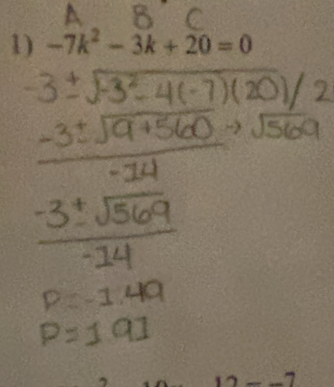 A B C
1) -7k² - 3k + 20 = 0
-3 ± √-3² - 4(-7)(20) / 2
-3 ± √9+560 → √569
-14
-3 ± √569
-14
P = -1.49
P = 1.91